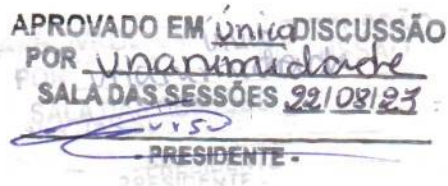 APROVADO EM única DISCUSSÃO
POR unanimidade
SALA DAS SESSÕES 22/08/23
- PRESIDENTE -